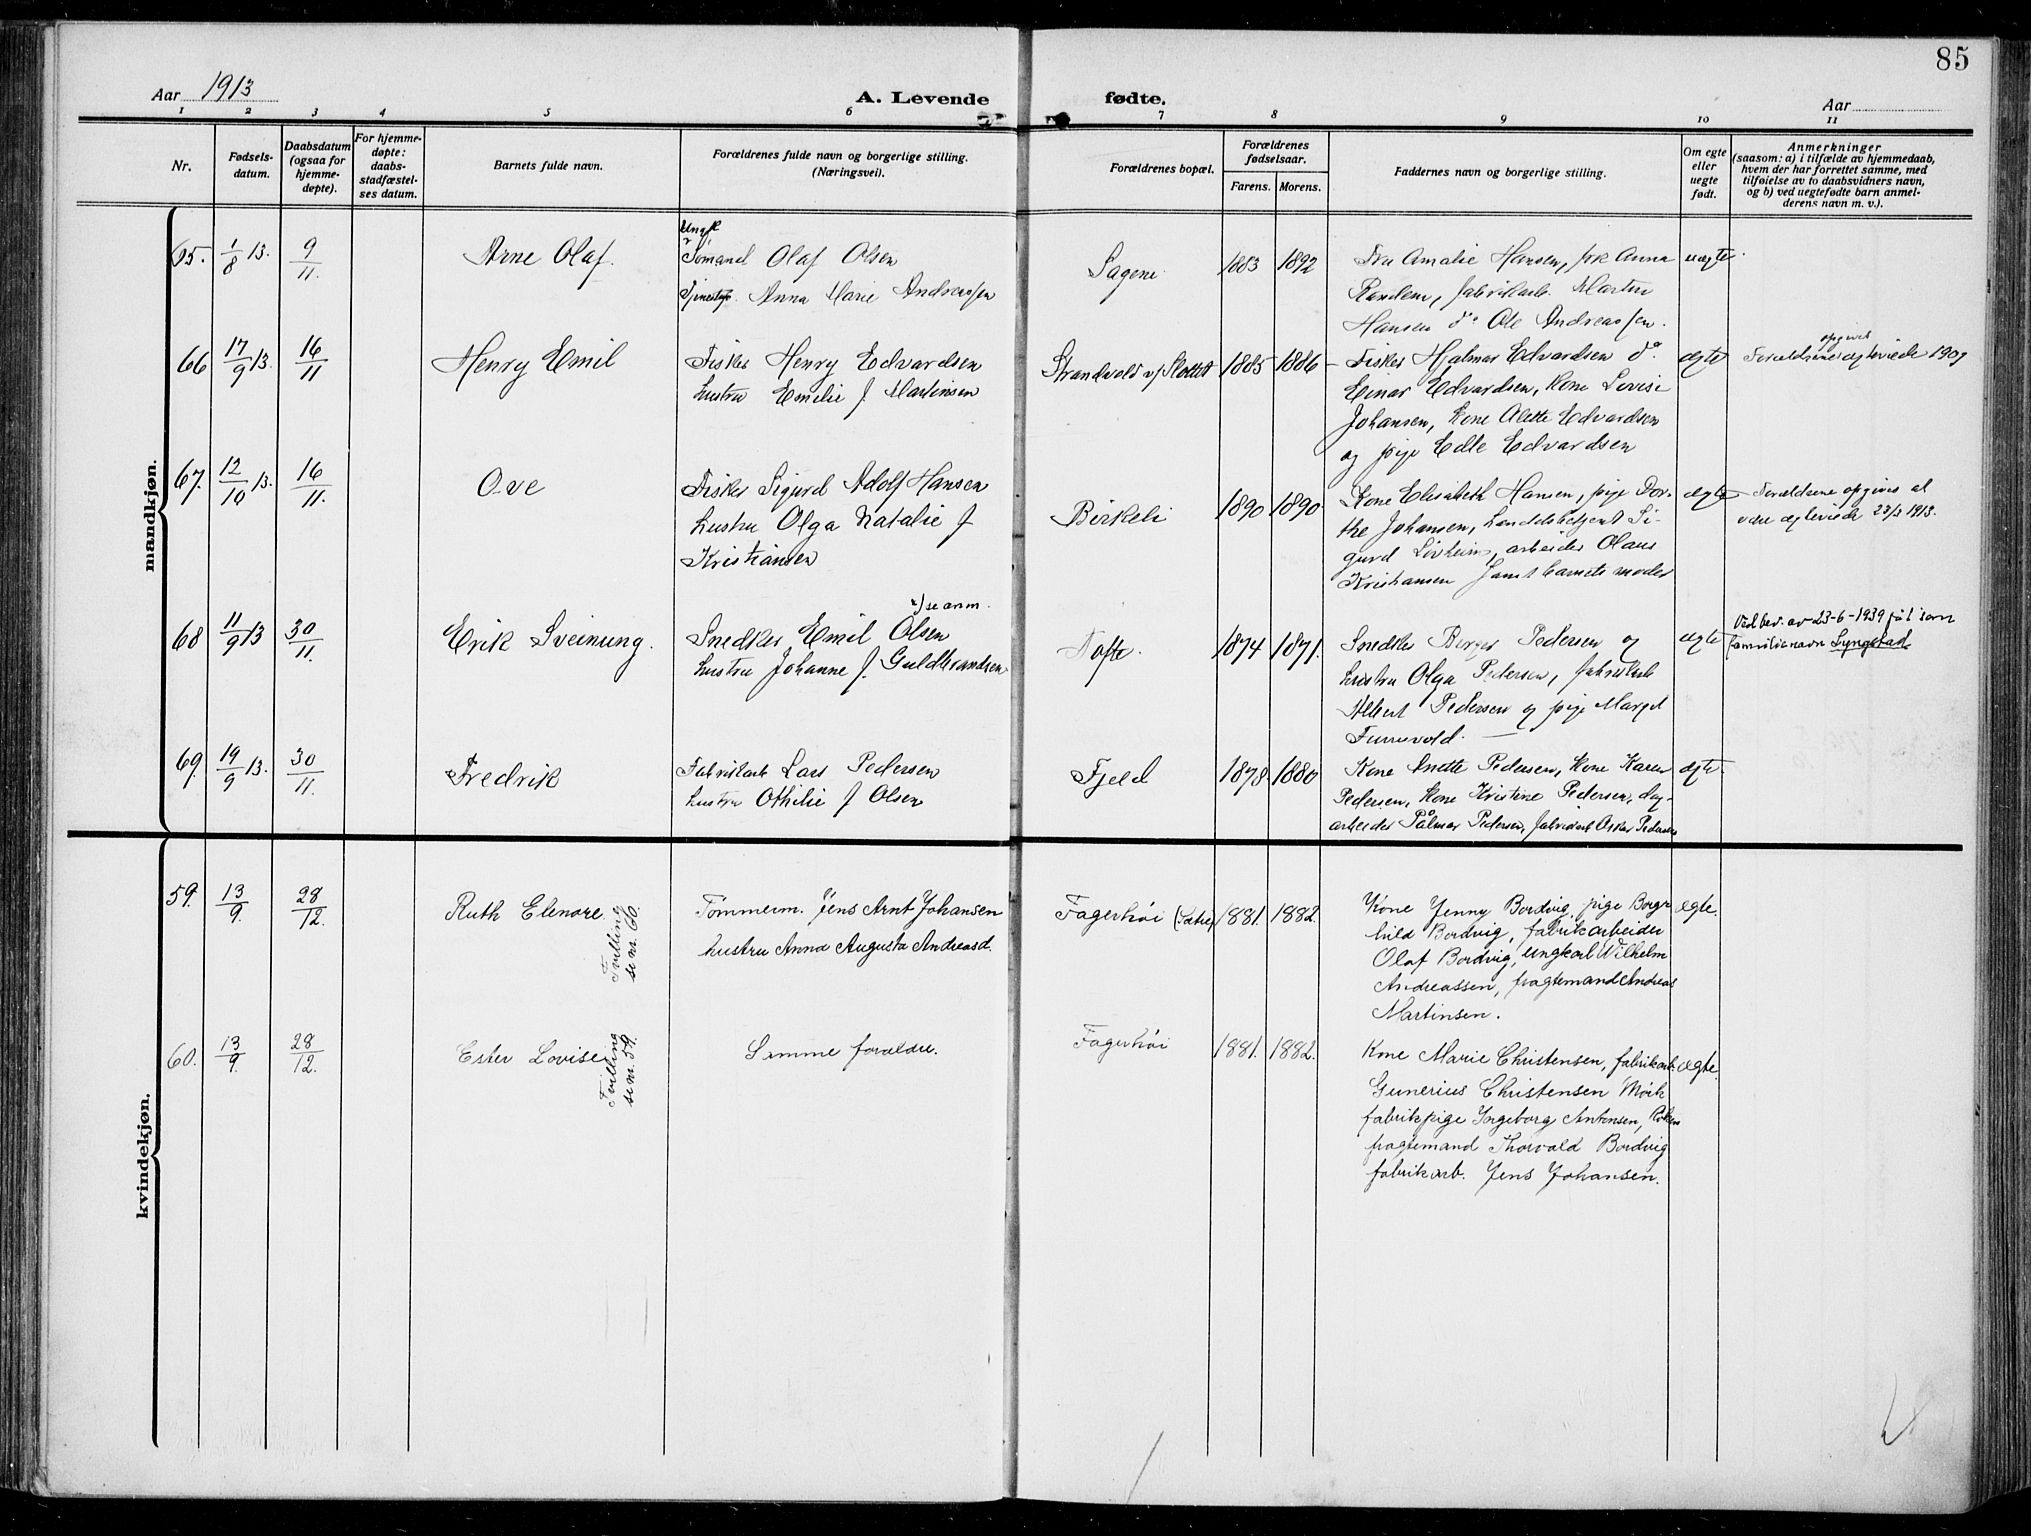 85
Aar 1913
A. Levende fødte.
Aar
1 2 3 4 5 6 7 8 9 10 11
Nr.
Fødsels-
datum.
Daabsdatum
(ogsaa for
hjemme-
døpte).
For hjemme-
døpte:
daabs-
stadfæstel-
ses datum.
Barnets fulde navn.
Forældrenes fulde navn og borgerlige stilling.
(Næringsvei).
Forældrenes bopæl.
Forældrenes
fødselsaar.
Farens. Morens.
Faddernes navn og borgerlige stilling.
Om egte
eller
uegte
født.
Anmerkninger
(saasom: a) i tilfælde av hjemmedaab,
hvem der har forrettet samme, med
tilføielse av to daabsvidners navn,
og b) ved uegtefødte barn anmel-
derens navn m. v.).
mandkjøn.
65. 1/8 13. 9/11. Arne Olaf.
Ungk
Sømand Olaf Olsen
Anna Marie Andreassen
Sagene 1883 1892
Fru Amalie Hansen, frk Anna
Randem, fabrikarb. Martin
Hansen do Ole Andreassen.
uægte
66 17/9 13. 16/11 Henry Emil
Fisker Henry Edvardsen
hustru Emilie f. Martinsen
Strandvold v/ Slottet 1885 1886
Fisker Hjalmar Edvardsen do
Einar Edvardsen, Kone Lovise
Johansen, Kone Alette Edvardsen
og pige Edle Edvardsen
ægte
opgives
Forældrene egteviede 1909
67. 12/10 13. 16/11. Ove
Fisker Sigurd Adolf Hansen
hustru Olga Natalie f
Kristiansen
Birkeli 1890 1890
Kone Elisabeth Hansen, pige Dor-
the Johansen, Landsbetjent Si-
gurd Lövheim, arbeider Olaus
Kristiansen samt barnets moder
ægte
Forældrene opgives at
være egteviede 23/3 1913.
68 11/9 13 30/11. Erik Sveinung.
x) se anm.
Snedker Emil Olsen
hustru Johanne f. Guldbrandsen
Tofte. 1874 1871.
Snedker Berger Pedersen og
hustru Olga Pedersen, fabrikarb
Albert Pedersen og pige Margit
Furuvold.
ægte
Ved bev. av 23-6-1939 fåt som
familienavn Lyngstad
69. 19/9 13. 30/11. Fredrik
Fabrikarb Lars Pedersen
hustru Othilie f Olsen
Fjeld 1878 1880
Kone Anette Pedersen, Kone Karen
Pedersen, Kone Kristine Pedersen, dag-
arbeider Pålmar Pedersen, fabrikarb Oskar Pedersen
ægte.
kvindekjøn.
59. 13/9. 28/12. Ruth Elenore.
Tvilling
se nr. 60.
Tømmerm. Jens Arnt Johansen
hustru Anna Augusta Andreasd.
Fagerhøi (Sætre) 1881. 1882.
Kone Jenny Bordvig, pige Borg-
hild Bordvig, fabrikarbeider
Olaf Bordvig, ungkarl Wilhelm
Andreassen, fragtemand Andreas
Martinsen.
ægte.
60. 13/9. 28/12. Ester Lovise
Tvilling
se nr. 59.
Samme forældre.
Fagerhøi 1881. 1882.
Kone Marie Christensen, fabrikarb.
Gunerius Christensen Mörk
fabrikpige Ingeborg Antonsen,
fragtemand Thorvald Bordvig
fabrikarb. Jens Johansen.
ægte.